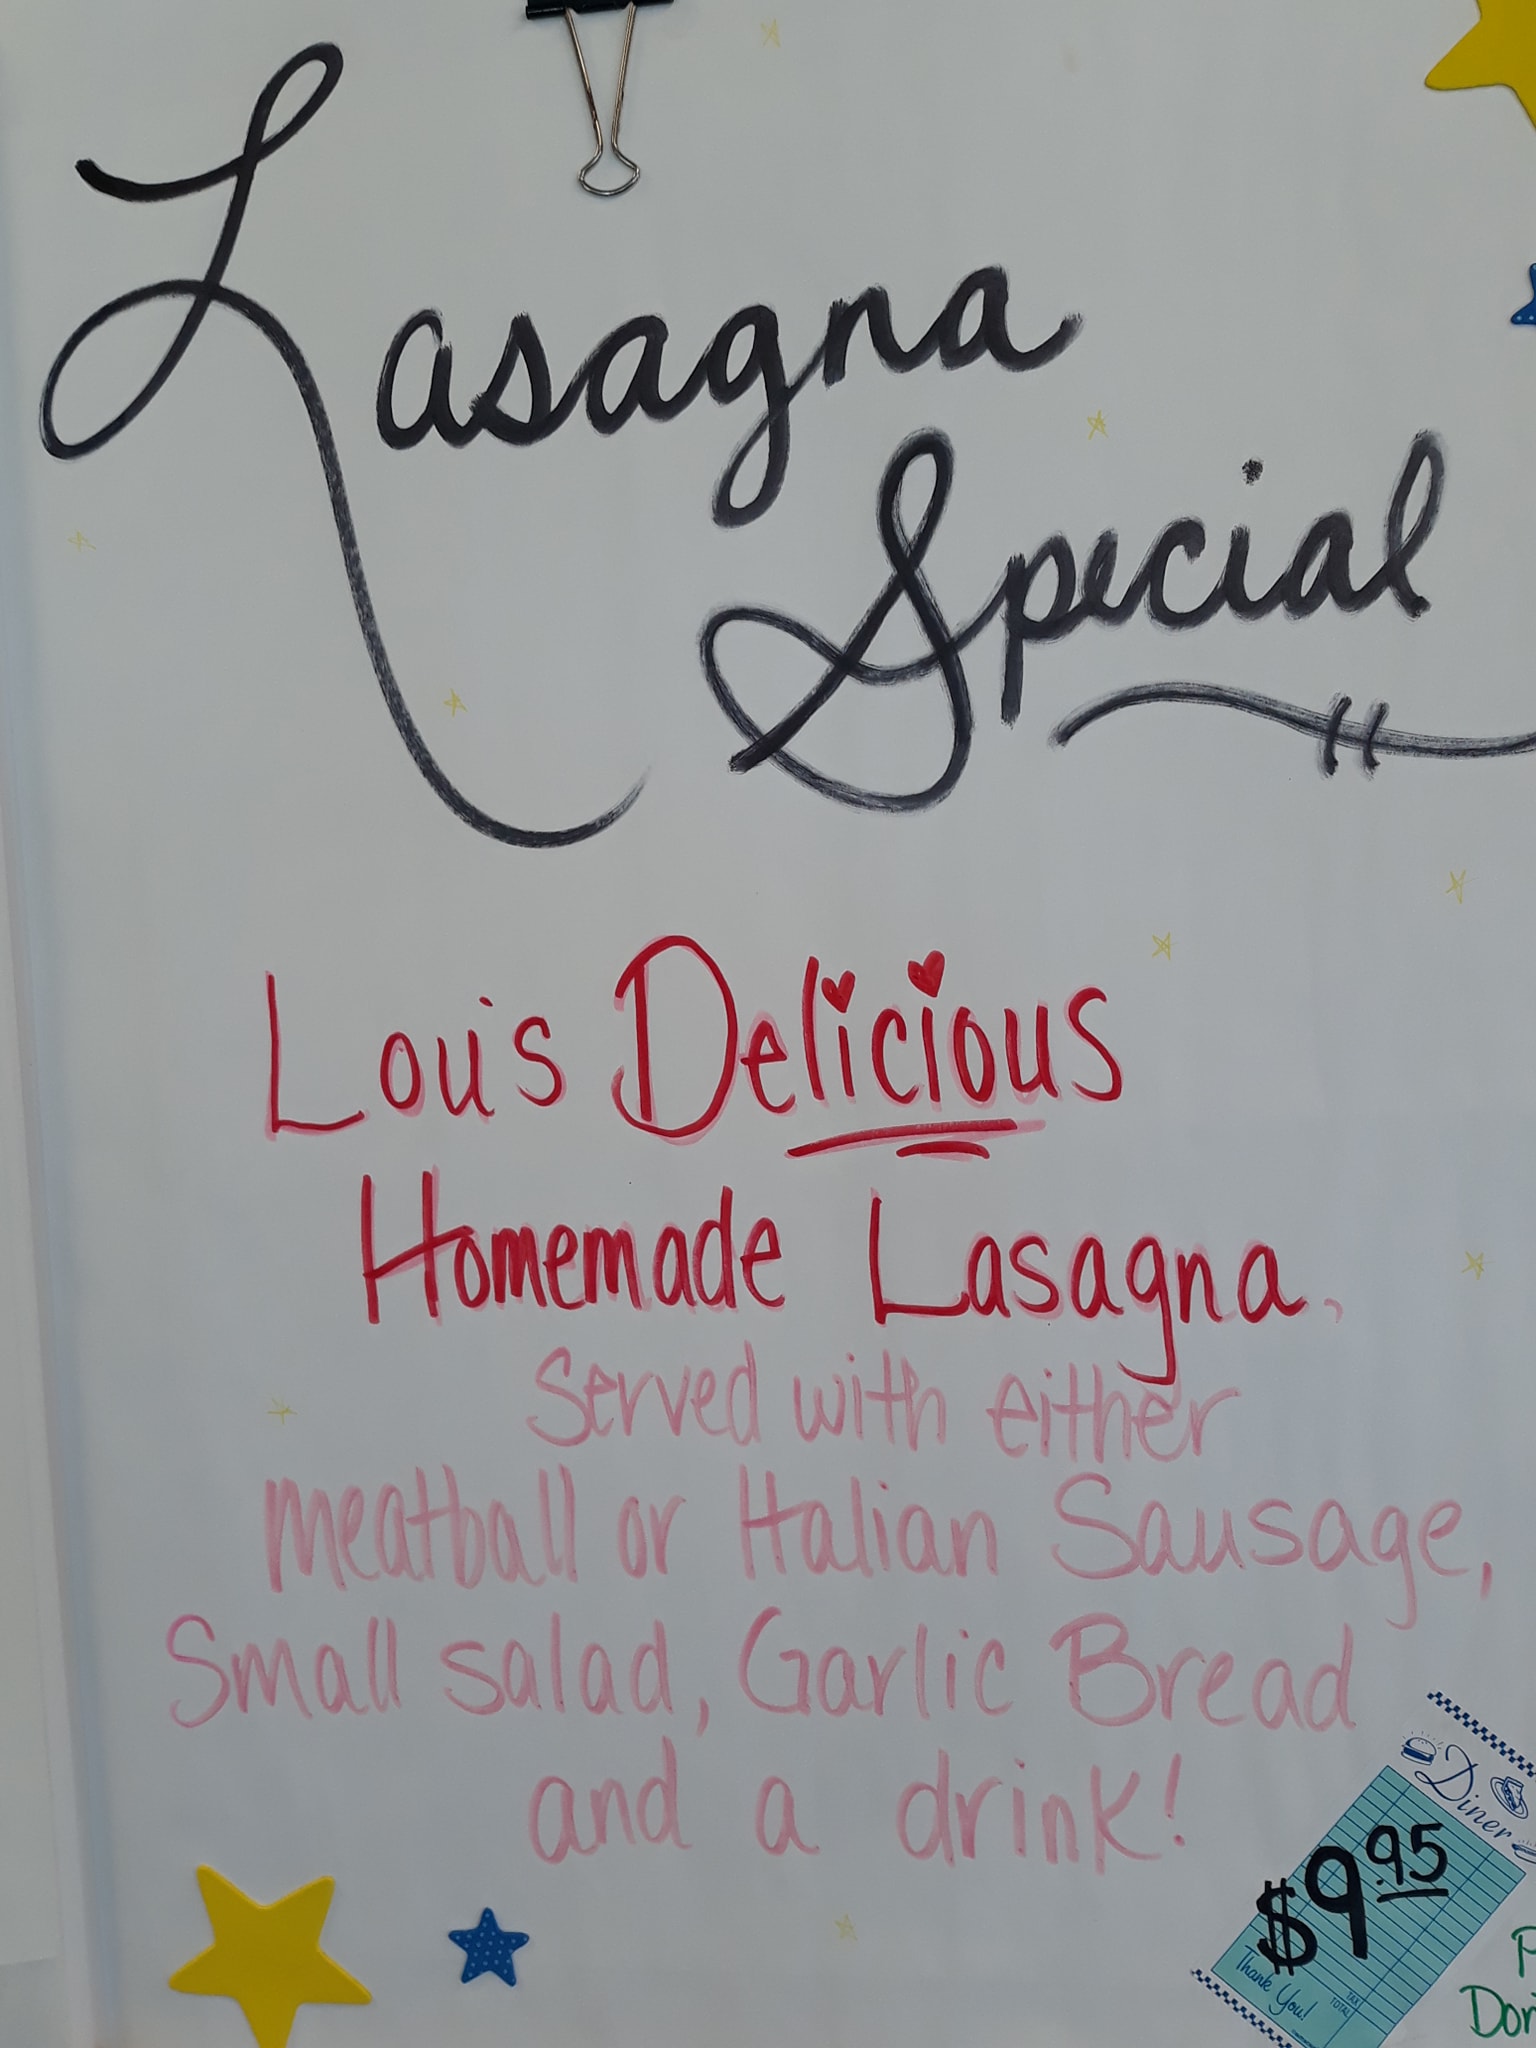 Lasagna
Special
Lou's Delicious
Homemade Lasagna.
Served with either
meatball or Italian Sausage,
Small salad, Garlic Bread
and a drink!
Diner
$9.95
TAX
TOTAL
Thank You!